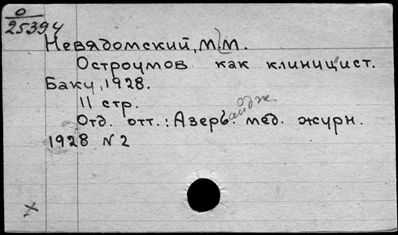 0
25394
Невядомский, М М.
Остроумов как клиницист.
Баку, 1928.
11 стр.
Отд. отт.: Азербайдж. мед. журн.
1928 N 2